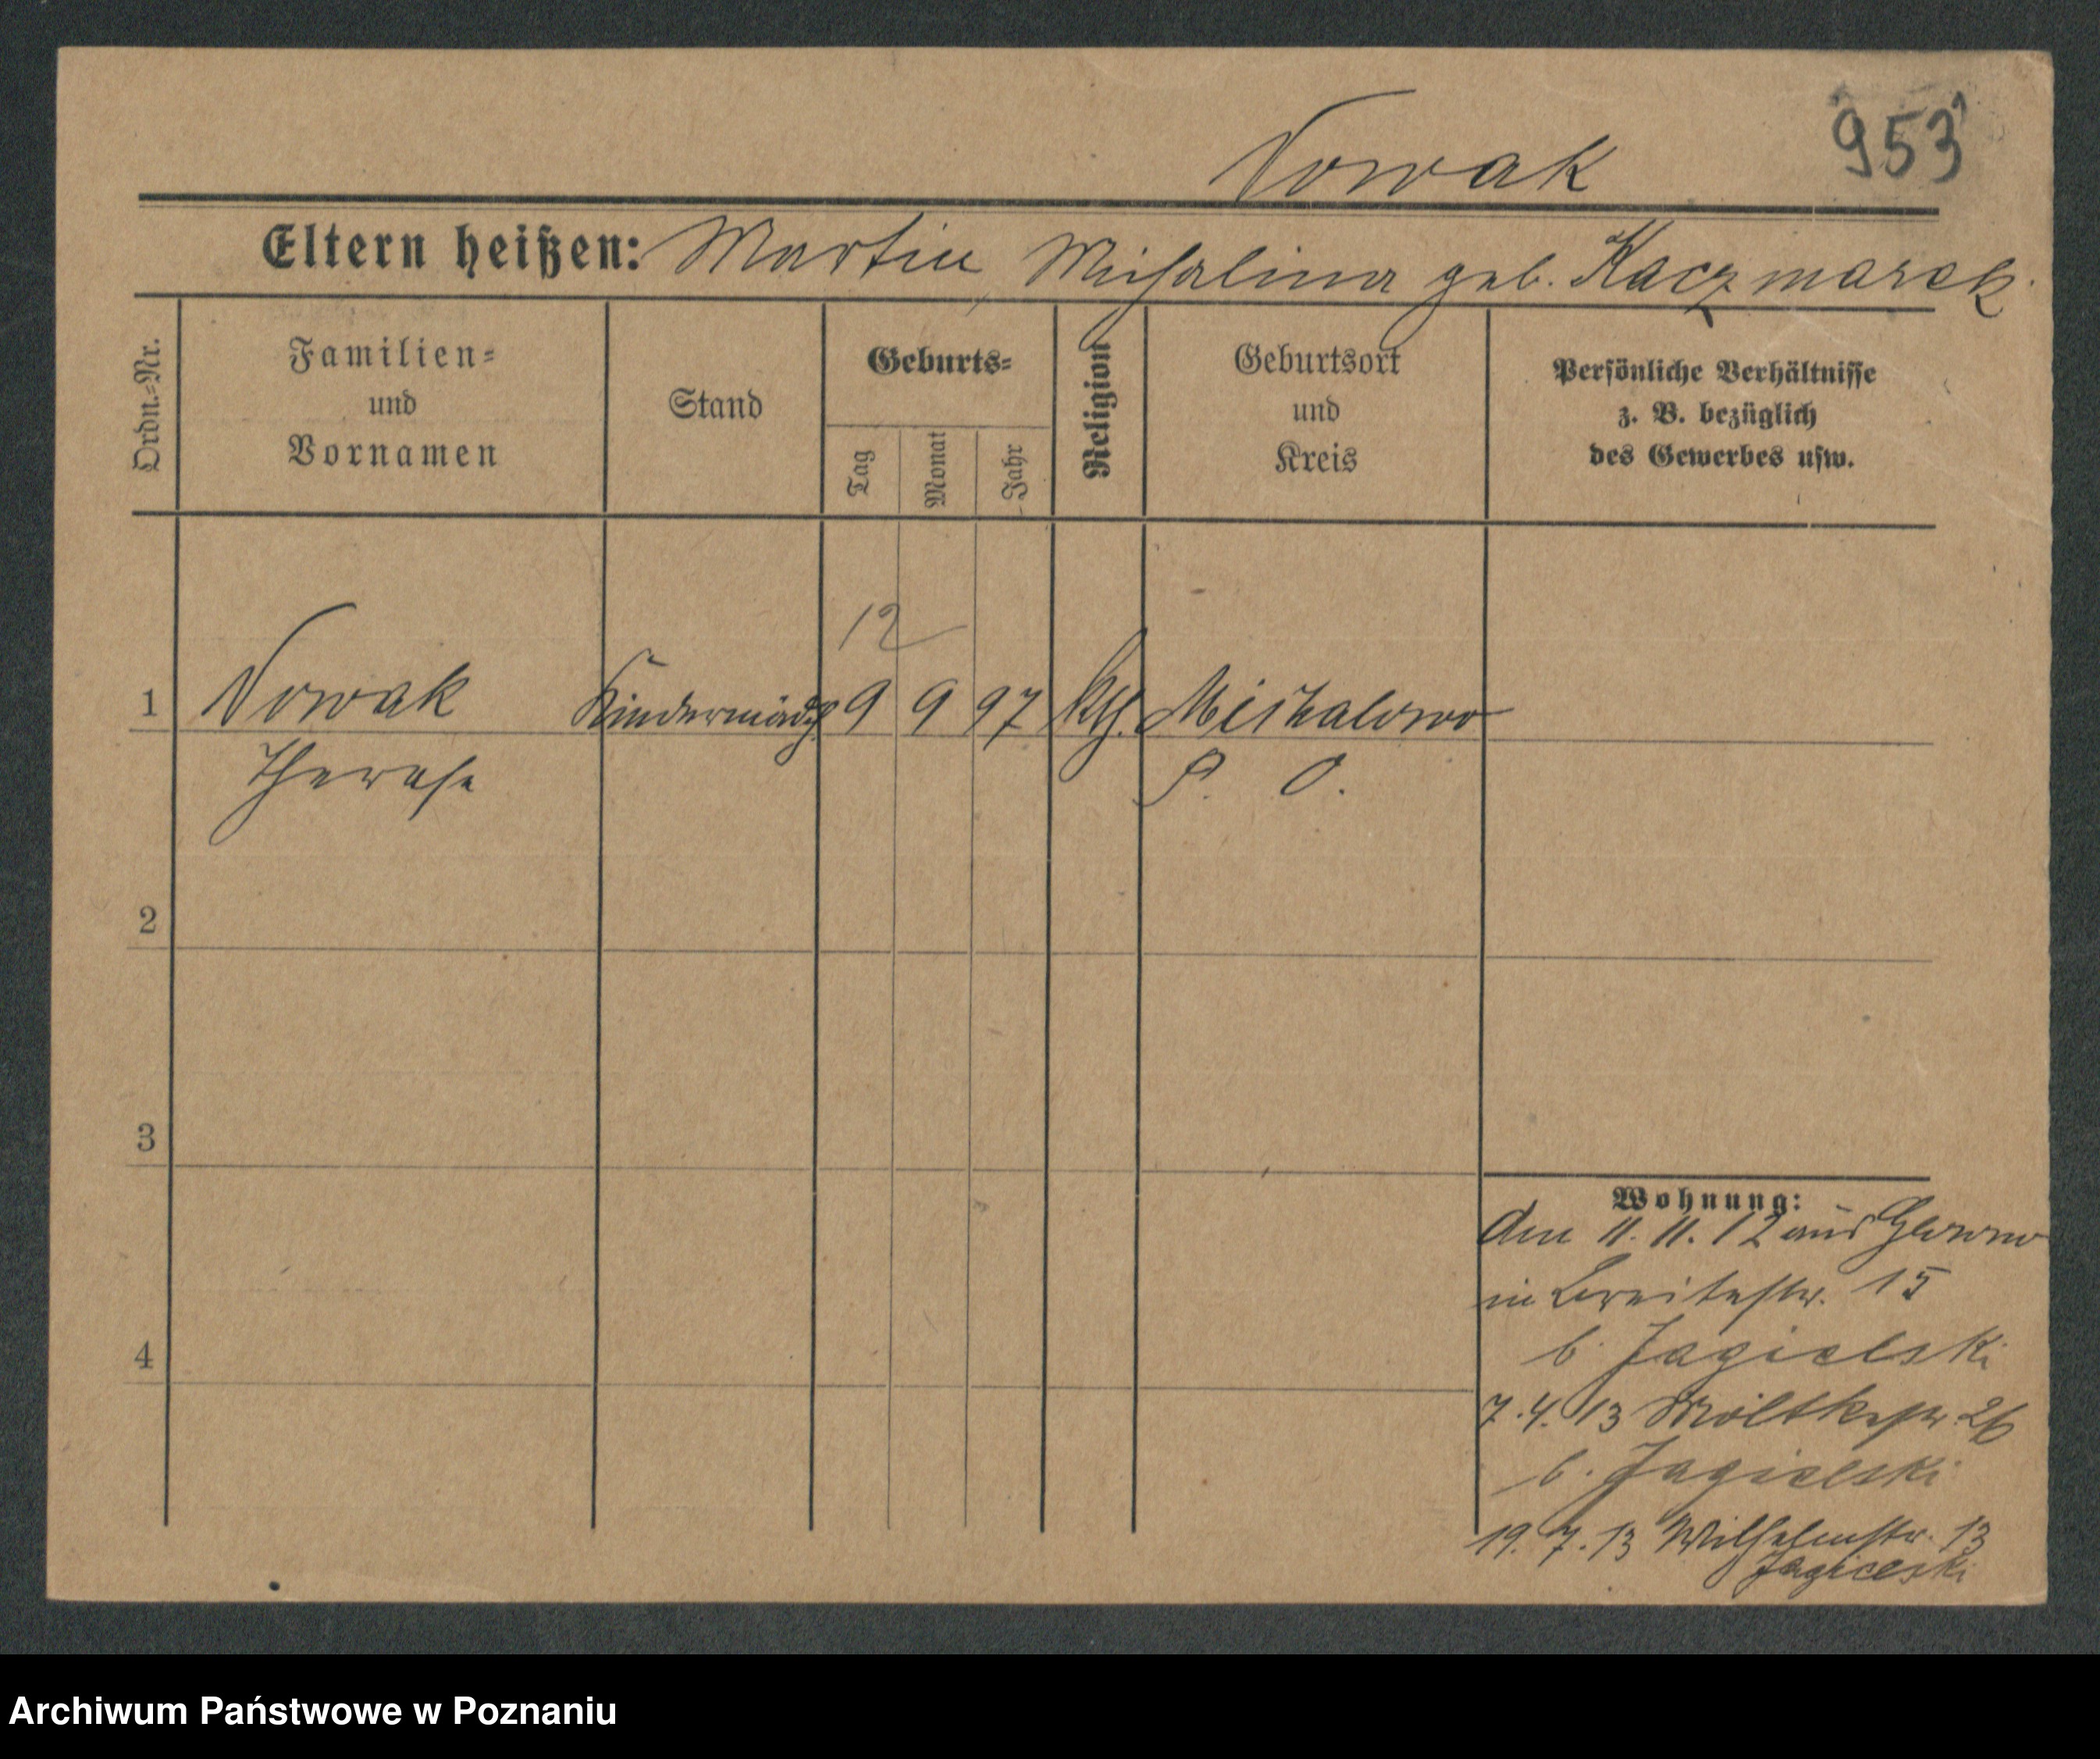 Nowak
953
Eltern heißen: Martin Michalina geb. Kaczmarek.
Ordn.-Nr.
Familien-
und
Vornamen
Stand
Geburts-
Tag
Monat
Jahr
Religion
Geburtsort
und
Kreis
Persönliche Verhältnisse
z. B. bezüglich
des Gewerbes usw.
12
1 Nowak Kindermädch. 9 9 97 kth. Michalowo
Therese P. O.
2
3
4
Wohnung:
den 11. 11. 12 aus
in Breitestr. 15
b. Jagielski
7. 4. 13 Moltkestr. 26
b. Jagielski
19. 7. 13 Wilhelmstr. 13
Jagielski
Archiwum Państwowe w Poznaniu